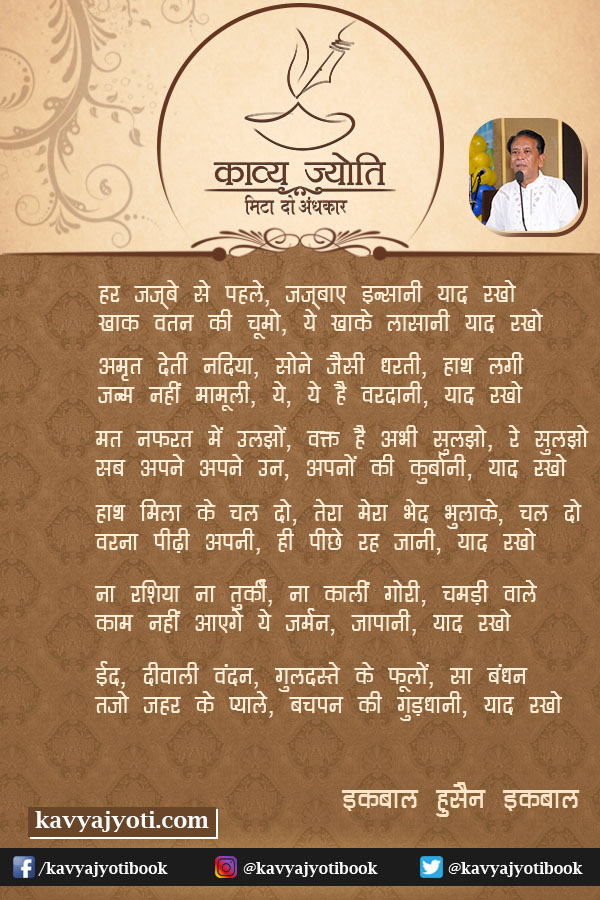 काव्य ज्योति
मिटा दो अंधकार
हर जज़्बे से पहले, जज़्बाए इन्सानी याद रखो
खाक वतन की चूमो, ये खाके लासानी याद रखो
अमृत देती नदिया, सोने जैसी धरती, हाथ लगी
जन्म नहीं मामूली, ये, ये है वरदानी, याद रखो
मत नफरत में उलझों, वक्त है अभी सुलझो, रे सुलझो
सब अपने अपने उन, अपनों की कुर्बानी, याद रखो
हाथ मिला के चल दो, तेरा मेरा भेद भुलाके, चल दो
वरना पीढ़ी अपनी, ही पीछे रह जानी, याद रखो
ना रशिया ना तुर्की, ना कालीं गोरी, चमड़ी वाले
काम नहीं आएगे ये जर्मन, जापानी, याद रखो
ईद, दीवाली वंदन, गुलदस्ते के फूलों, सा बंधन
तजो जहर के प्याले, बचपन की गुड़धानी, याद रखो
इकबाल हुसैन इकबाल
kavyajyoti.com
/kavyajyotibook @kavyajyotibook @kavyajyotibook